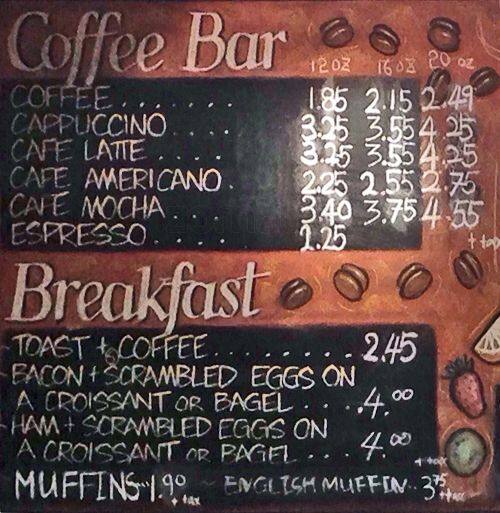 Coffee Bar
12 oz 16 oz 20 oz
COFFEE........ 1.85 2.15 2.49
CAPPUCCINO.... 3.25 3.55 4.25
CAFE LATTE ..... 3.25 3.55 4.25
CAFE AMERICANO. 2.25 2.55 2.75
CAFE MOCHA.... 3.40 3.75 4.55
ESPRESSO..... 1.25
+ tax
Breakfast
TOAST + COFFEE.......... 2.45
BACON + SCRAMBLED EGGS ON
A CROISSANT OR BAGEL.....4.00
HAM + SCRAMBLED EGGS ON
A CROISSANT OR BAGEL.... 4.00
+ tax
MUFFINS..1.90 + tax ~ ENGLISH MUFFIN.. 3.75 + tax